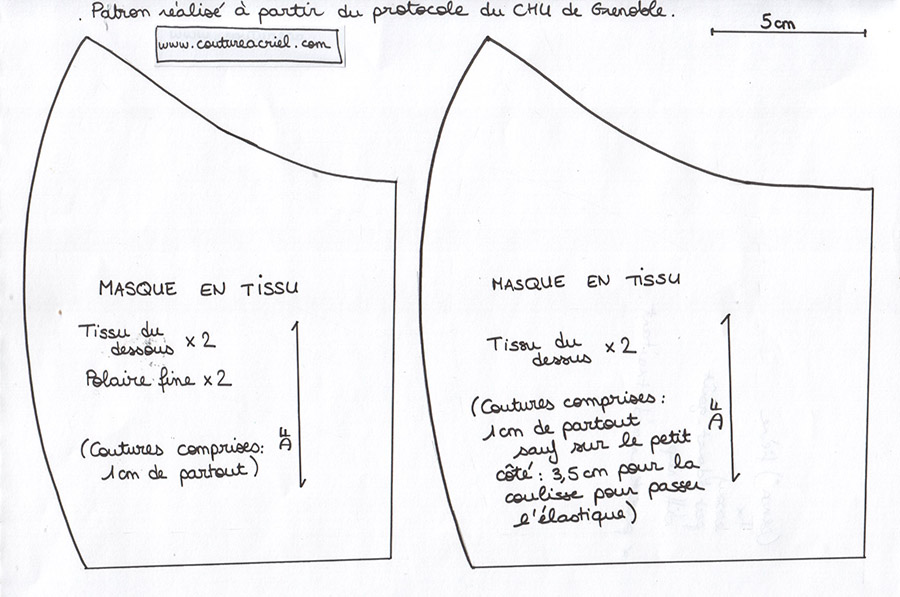 . Patron réalisé à partir du protocole du CHU de Grenoble.
www.coutureacriel.com
5cm
MASQUE EN TISSU
Tissu du
dessous x 2
Polaire fine x 2
(Coutures comprises:
1cm de partout)
MASQUE EN TISSU
Tissu du
dessus x 2
(Coutures comprises:
1cm de partout
sauf sur le petit
côté: 3,5 cm pour la
coulisse pour passer
l'élastique)